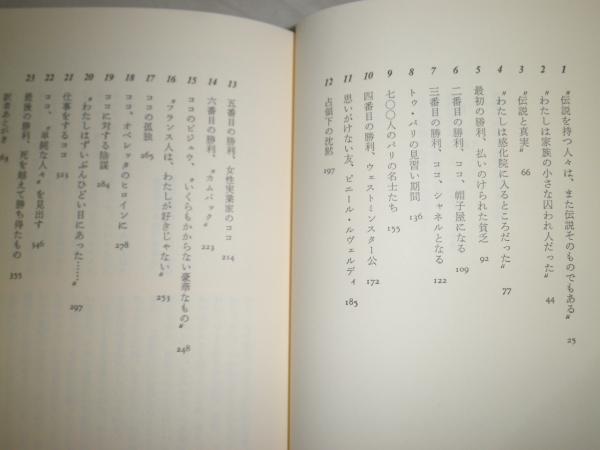 1 〝伝説を持つ人々は、また伝説そのものでもある〟 25
2 〝わたしは家族の小さな囚われ人だった〟 44
3 〝伝説と真実〟 66
4 〝わたしは感化院に入るところだった〟 77
5 最初の勝利、払いのけられた貧乏 92
6 二番目の勝利、ココ、帽子屋になる 109
7 三番目の勝利、ココ、シャネルとなる 122
8 トゥ・パリの見習い期間 136
9 七〇〇人のパリの名士たち 155
10 四番目の勝利、ウェストミンスター公 172
11 思いがけない友、ピエール・ルヴェルディ 185
12 占領下の沈黙 197
13 五番目の勝利、女性実業家のココ 214
14 六番目の勝利、〝カムバック〟 223
15 ココのビジュウ、〝いくらもかからない豪華なもの〟 248
16 〝フランス人は、わたしが好きじゃない〟 253
17 ココの孤独 265
18 ココ、オペレッタのヒロインに 278
19 ココに対する陰謀 284
20 〝わたしはずいぶんひどい目にあった……〟 297
21 仕事をするココ 323
22 ココ、〝単純な人々〟を見出す 346
23 最後の勝利、死を越えて勝ち得たもの 355
訳者あとがき